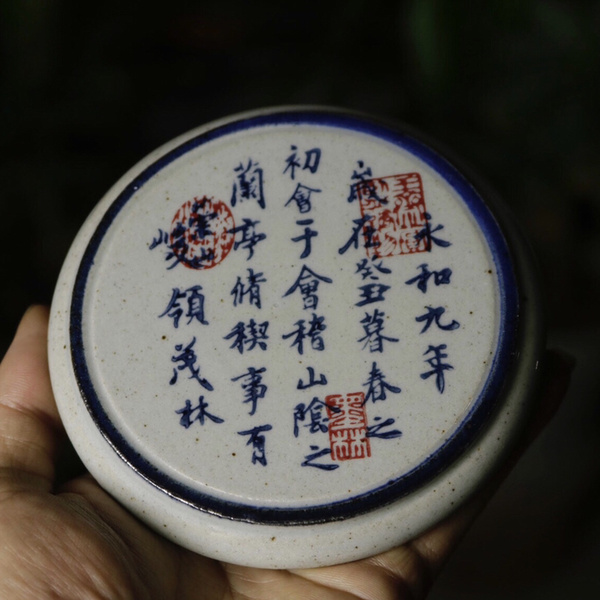 永和九年
歲在癸丑暮春之
初會于會稽山陰之
蘭亭脩稧事有
崇山峻領茂林